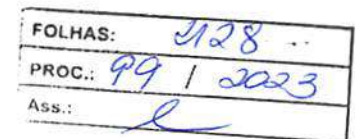 FOLHAS: 2128
PROC.: 99 / 2023
Ass.: